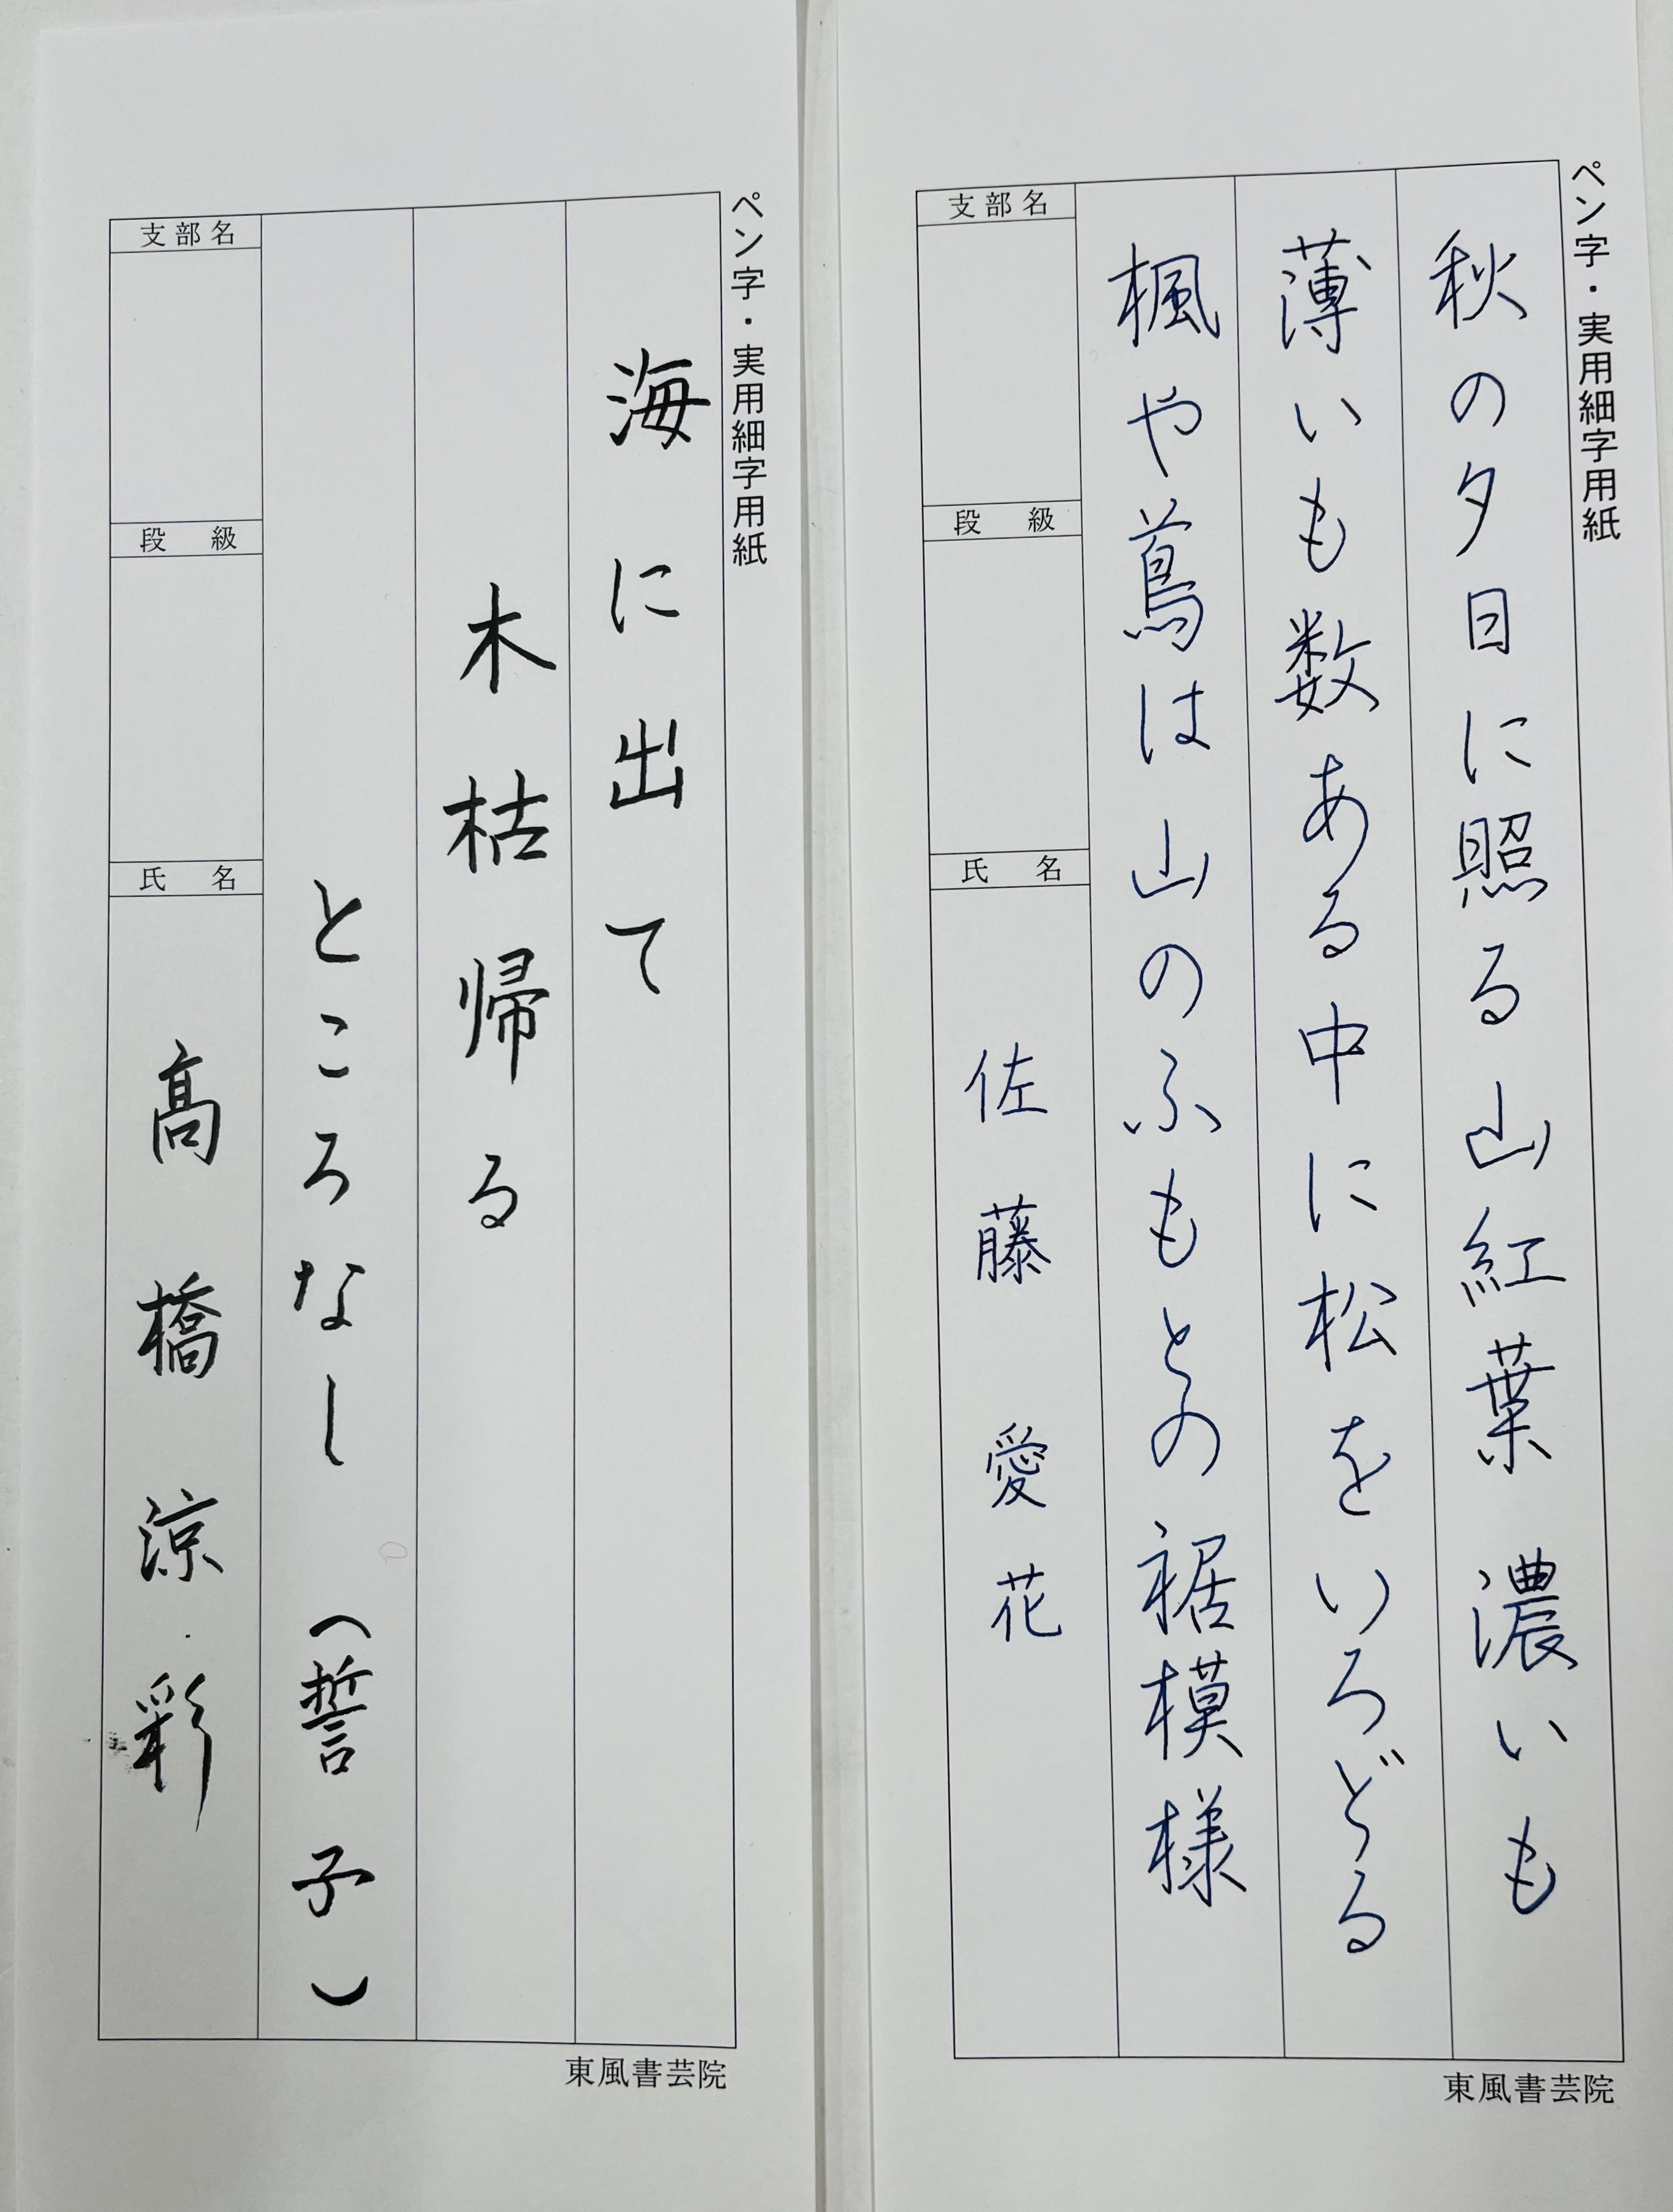 ペン字・実用細字用紙
秋の夕日に照る山紅葉 濃いも
薄いも数ある中に松をいろどる
楓や蔦は山のふもとの裾模様
支部名
段級
氏名
佐藤 愛花
東風書芸院
ペン字・実用細字用紙
海に出て
木枯帰る
ところなし (誓子)
支部名
段級
氏名
髙橋涼彩
東風書芸院